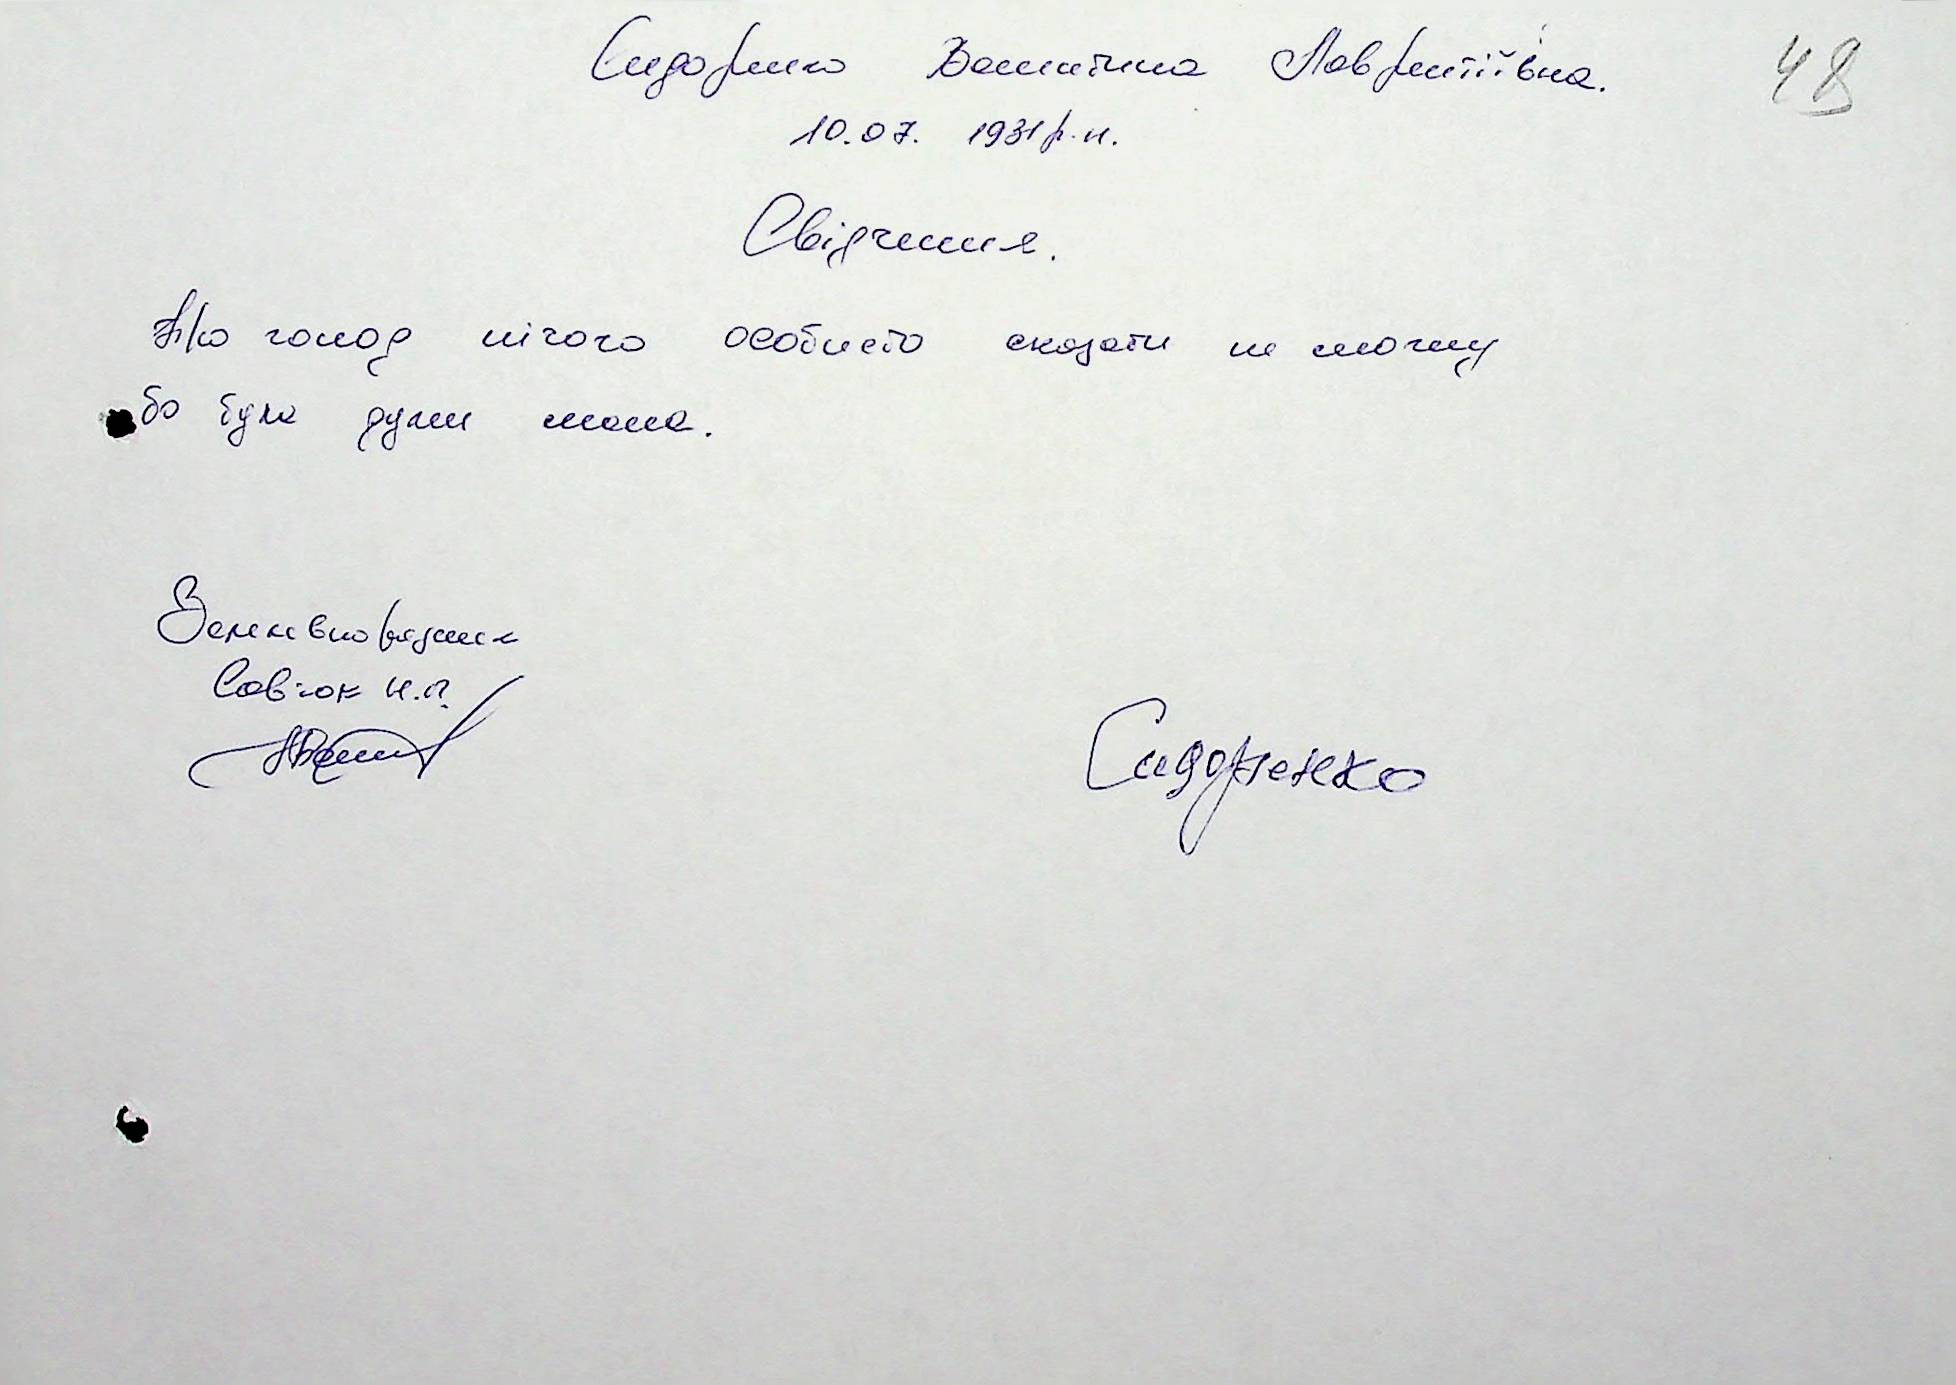 Сидоренко Валентина Лаврентіївна.
48
10.07. 1931 р.н.
Свідчення.
Про голод нічого особисто сказати не можу
бо була дуже мала.
Землевпорядник
Савчок Н.П.
Сидоренко